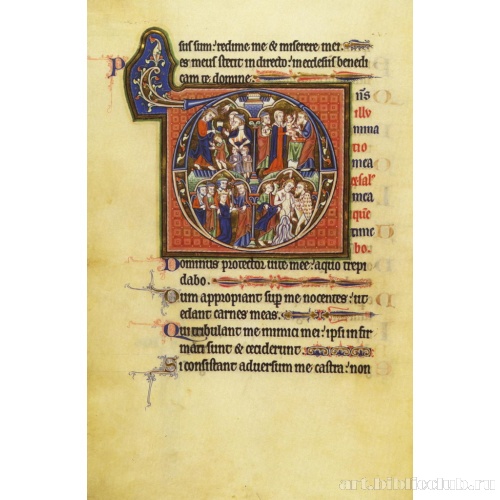 sus sum: redime me & miserere mei.
Pes meus stetit in directo: in ecclesiis benedi
cam te domine.
D
ns
illu
mina
tio
mea
& sal'
mea
que
time
bo.
Dominus protector vite mee: a quo trepi
dabo.
Dum appropiant sup me nocentes: ut
edant carnes meas.
Qui tribulant me inimici mei: ipsi infir
mati sunt & ceciderunt.
Si consistant adversum me castra: non
art.biblioclub.ru